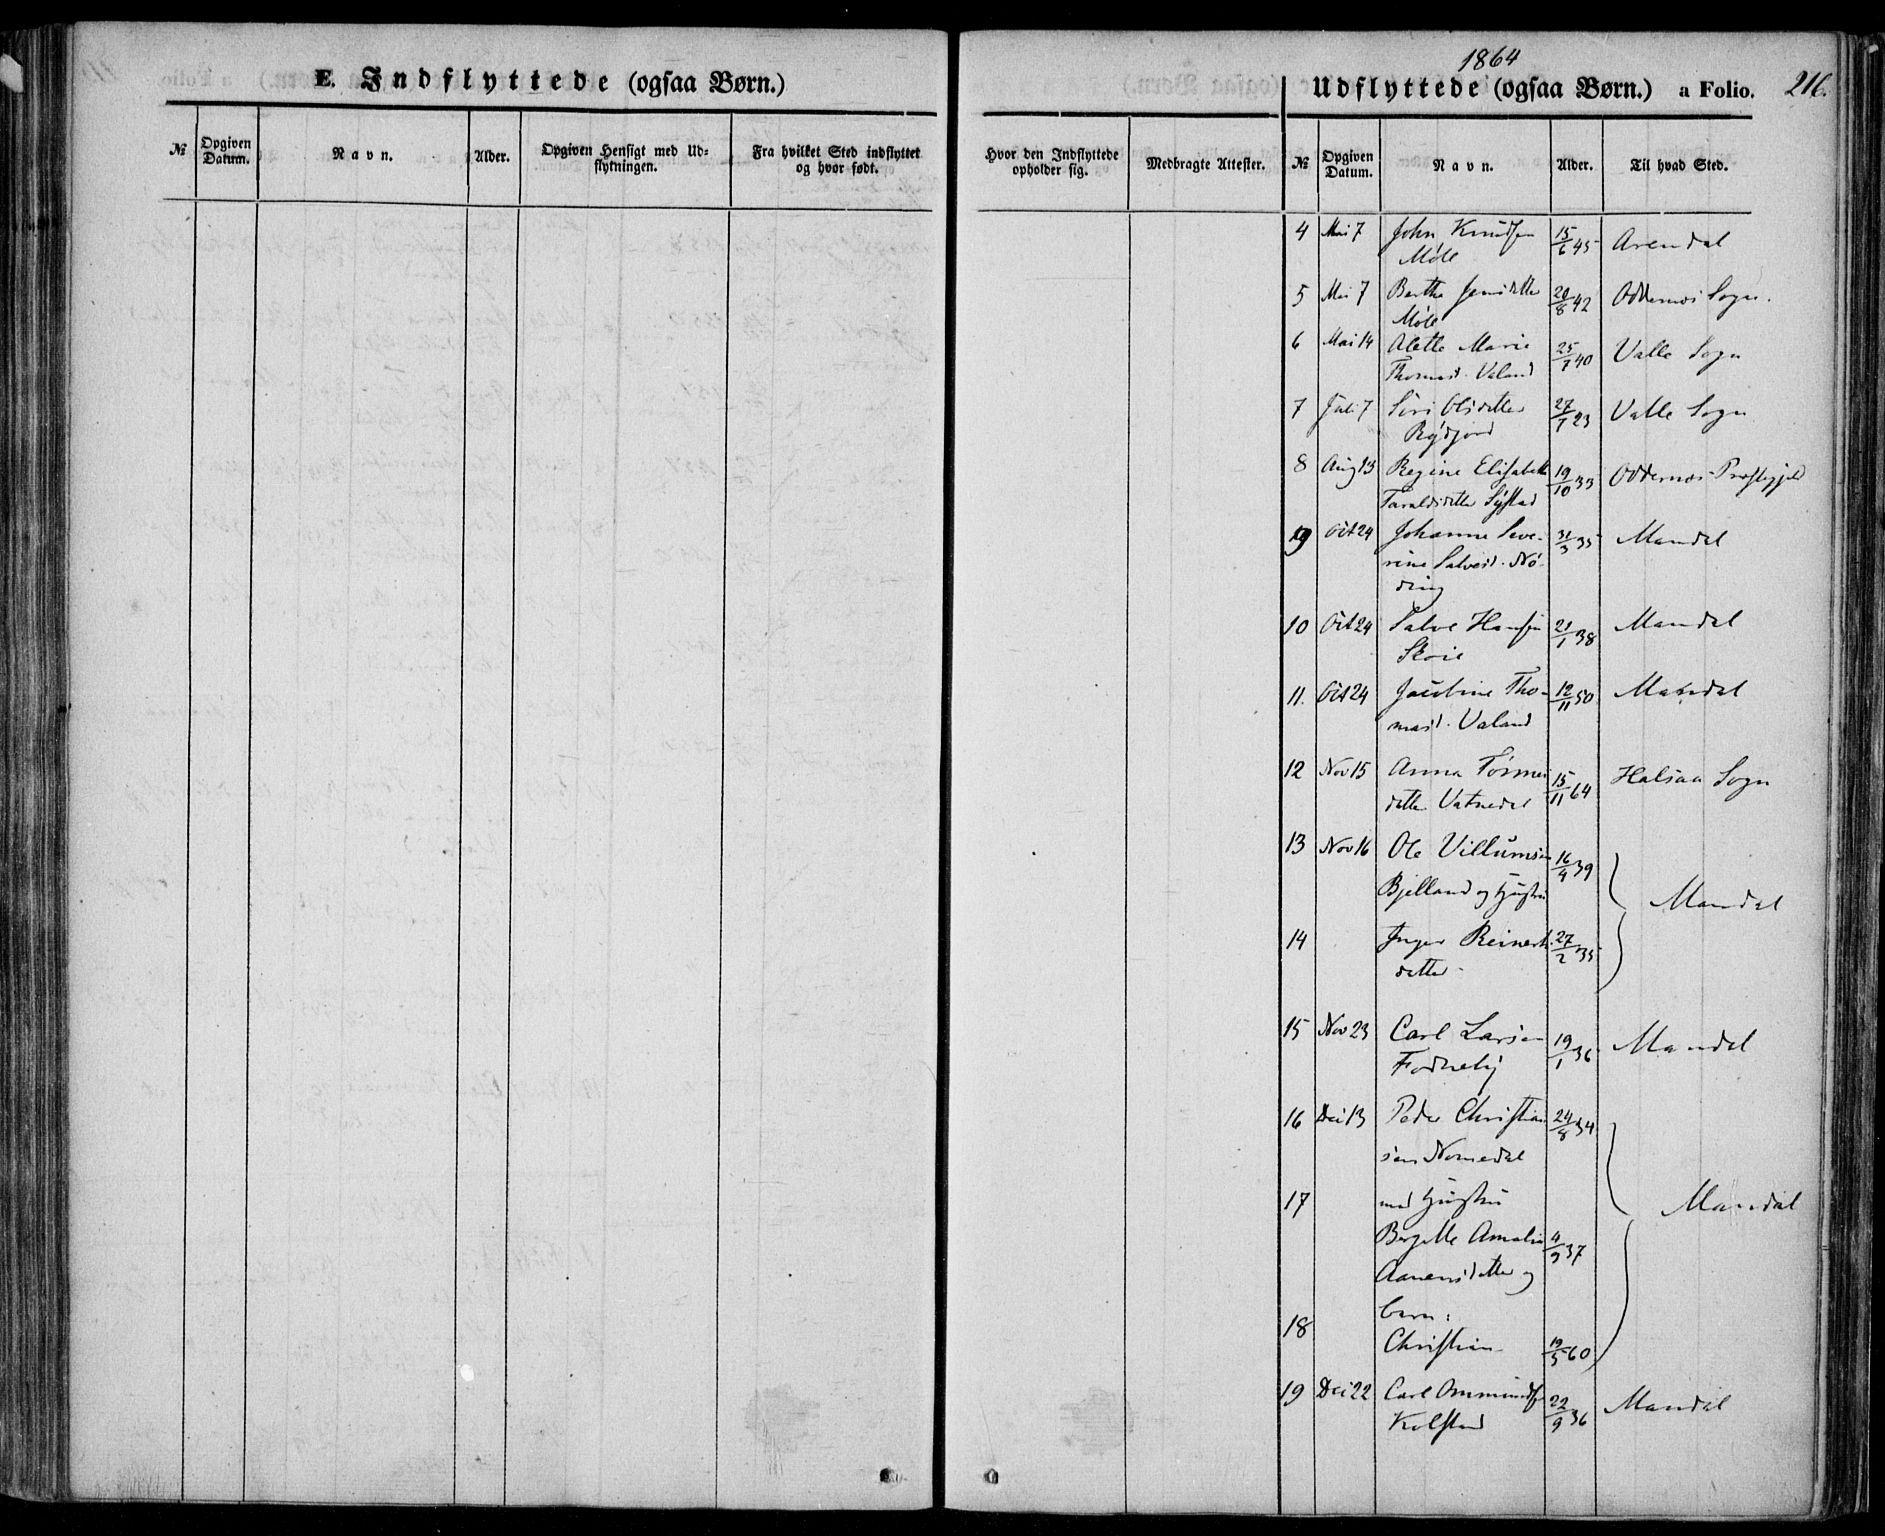 E. Indflyttede (ogsaa Børn.)
№
Opgiven Datum.
Navn.
Alder.
Opgiven Hensigt med Udflytningen.
Fra hvilket Sted indflyttet og hvor født.
Hvor den Indflyttede opholder sig.
Medbragte Attester.
1864
Udflyttede (ogsaa Børn.) a Folio. 216.
№
Opgiven Datum.
Navn.
Alder.
Til hvad Sted.
4 Mai 7 John Knudsen 15/6 45 Arendal
Møle
5 Mai 7 Berthe Jensdatter 20/8 42 Oddernes Sogn.
Møle
6 Mai 14 Alette Marie 25/7 40 Valle Sogn
Thomasd. Valand
7 Juli 7 Siri Olsdatter 27/7 23 Valle Sogn
8 Aug 13 Regine Elisabeth 19/10 33 Oddernes Præstegjeld
Taraldsdatter
9 Oct 24 Johanne Seve- 31/3 35 Mandal
rine Salvesd. Nø-
ding
10 Oct 24 Salve Hansen 21/1 38 Mandal
Skoie
11. Oct 24 Jacobine Tho- 12/11 50 Mandal
masd. Valand
12 Nov 15 Anna Tørres 15/11 64 Halsaa Sogn
datter Vatnedal
13 Nov 16 Ole Villumsen 16/4 39
Bjelland og Hustru
Mandal
14 Inger Reinerts 27/2 35
datter
15 Nov 23 Carl Larsen 19/1 36 Mandal
Fodneby
16 Dec 13 Peder Christian 24/8 34
sen Nomedal
17 med Hustru
Mandal
Bergitte Amalia 4/9 37
Aanensdatter og
18 barn:
Christian 19/5 60
19 Dec 22 Carl Ommundsen 22/9 36 Mandal
Kolstad